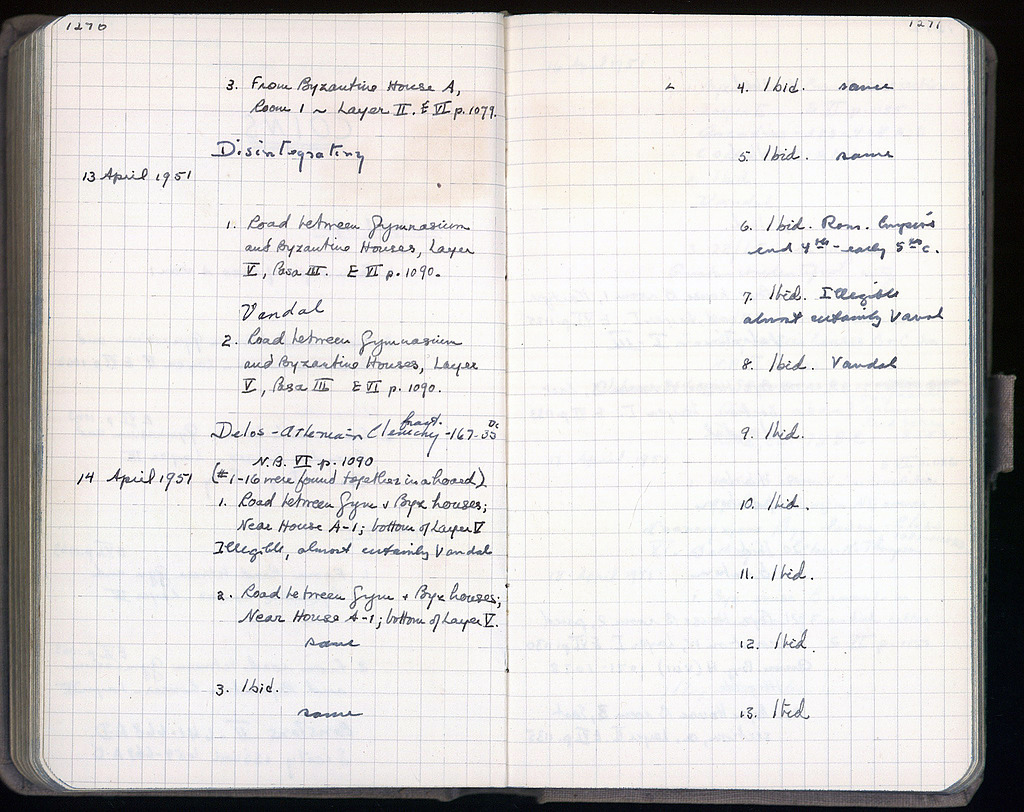 1270
3. From Byzantine House A,
Room 1 ~ Layer II. E VI p. 1079.
Disintegrating
13 April 1951
1. Road between Gymnasium
and Byzantine Houses, Layer
V, Pasa III. E VI p. 1090.
Vandal
2. Road between Gymnasium
and Byzantine Houses, Layer
V, Pasa III E VI p. 1090.
Delos - Athenian Cleruchy - 167-
N.B. VI p. 1090
14 April 1951 (#1-16 were found together in a hoard)
1. Road between Gym + Byz houses;
Near House A-1; bottom of Layer V
Illegible, almost certainly Vandal
2. Road between Gym + Byz houses;
Near House A-1; bottom of Layer V.
same
3. Ibid.
same
1271
4. Ibid. same
5. Ibid. same
6. Ibid. Rom. Empire
end 4th - early 5th c.
7. Ibid. Illegible
almost certainly Vandal
8. Ibid. Vandal
9. Ibid.
10. Ibid.
11. Ibid.
12. Ibid.
13. Ibid